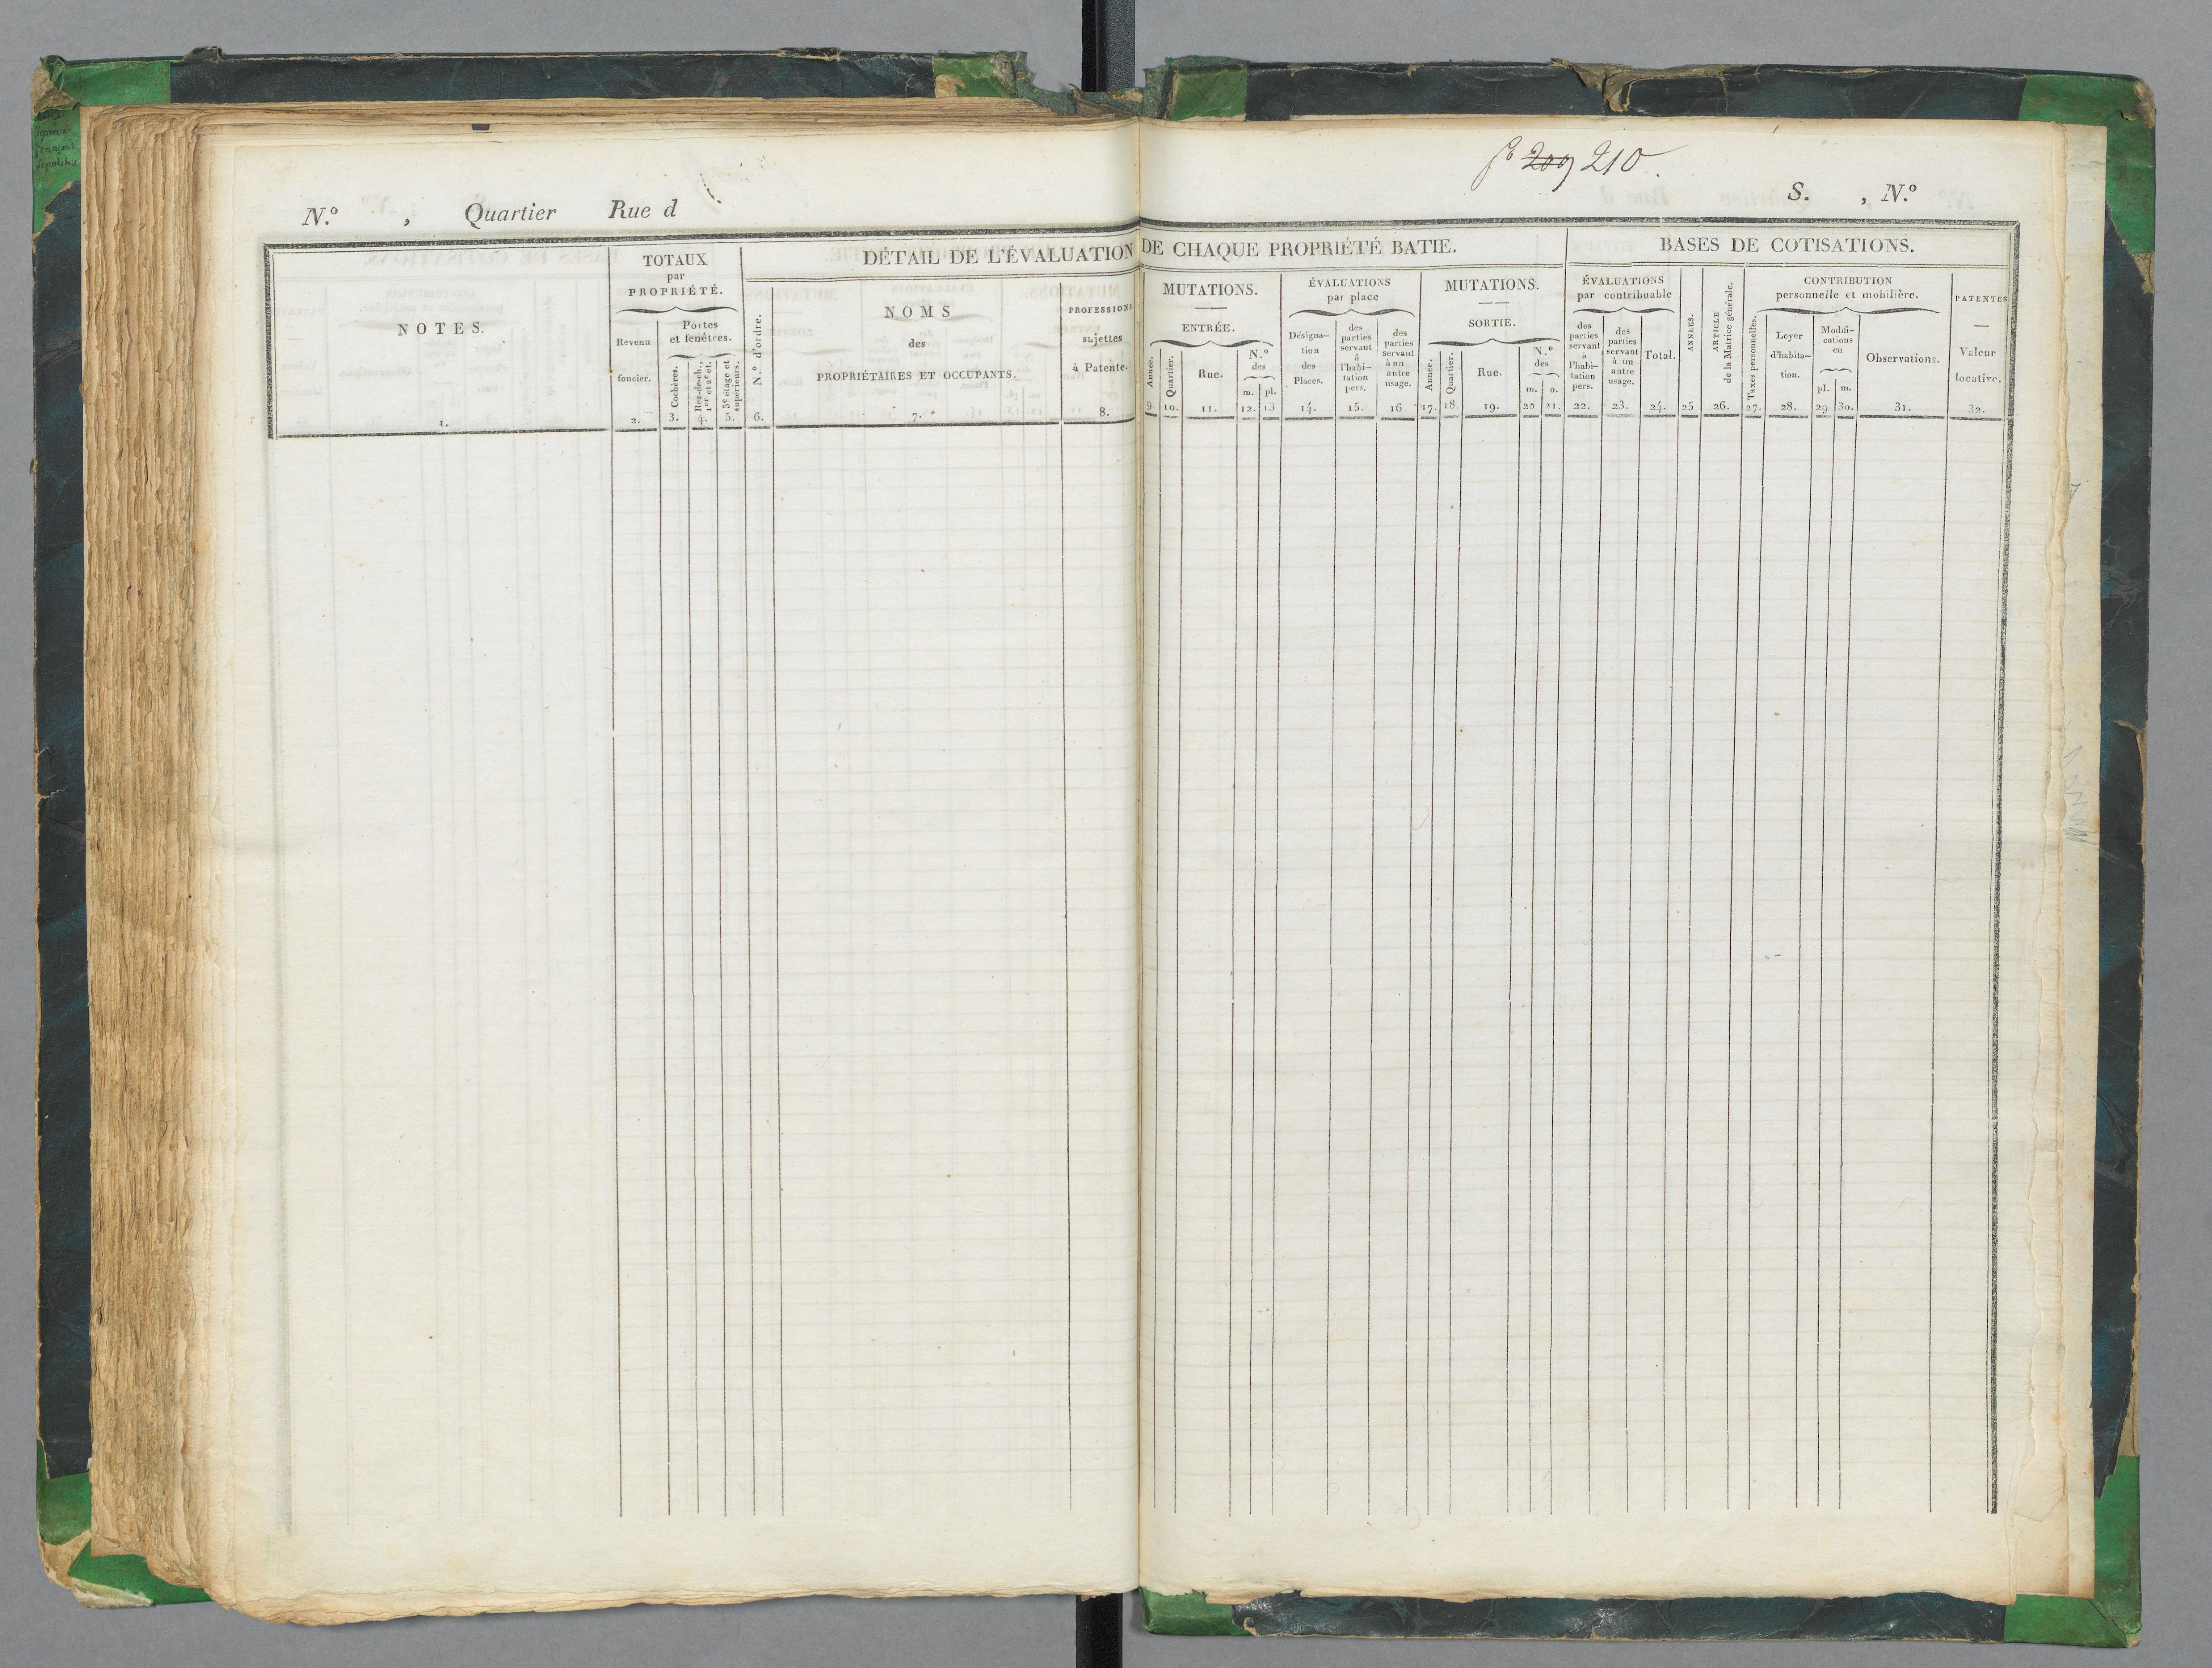 fo 209 210.
N.o , Quartier Rue d
S. , N.o
DÉTAIL DE L'ÉVALUATION DE CHAQUE PROPRIÉTÉ BATIE.
BASES DE COTISATIONS.
NOTES.
1.
TOTAUX
par
PROPRIÉTÉ.
Revenu
foncier.
2.
Portes
et fenêtres.
Cochères.
3.
Rez-de-ch.,
1er et 2e ét.
4.
3e étage et
supérieurs.
5.
N.o d'ordre.
6.
NOMS
des
PROPRIÉTAIRES ET OCCUPANTS.
7.
PROFESSIONS
sujettes
à Patente.
8.
MUTATIONS.
ENTRÉE.
Année.
9.
Quartier.
10.
Rue.
11.
N.o
des
m.
12.
pl.
13
ÉVALUATIONS
par place
Désigna-
tion
des
Places.
14.
des
parties
servant
à
l'habi-
tation
pers.
15.
des
parties
servant
à un
autre
usage.
16
MUTATIONS.
SORTIE.
Année.
17.
Quartier.
18.
Rue.
19.
N.o
des
m.
20
o.
21.
ÉVALUATIONS
par contribuable
des
parties
servant
à
l'habi-
tation
pers.
22.
des
parties
servant
à un
autre
usage.
23.
Total.
24.
ANNÉES.
25
ARTICLE
de la Matrice générale.
26.
CONTRIBUTION
personnelle et mobilière.
Taxes personnelles.
27.
Loyer
d'habita-
tion.
28.
Modifi-
cations
en
pl.
29
m.
30.
Observations.
31.
PATENTES
Valeur
locative.
32.